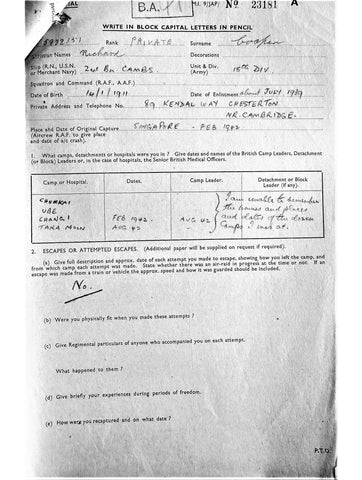 IAL
B.A.
M.I. 9/JAP/ No 23181 A
WRITE IN BLOCK CAPITAL LETTERS IN PENCIL
Rank PRIVATE Surname Cooper
Christian Names Richard Decorations
Ship (R.N., U.S.N. or Merchant Navy) 2nd Bn. CAMBS. Unit & Div. (Army) 18th DIV.
Squadron and Command (R.A.F., A.A.F.)
Date of Birth 14/1/1911 Date of Enlistment about JULY. 1939
Private Address and Telephone No. 89 KENDAL WAY CHESTERTON
NR. CAMBRIDGE.
Place and Date of Original Capture SINGAPORE - FEB 1942
(Aircrew R.A.F. to give place and date of a/c crash).
1. What camps, detachments or hospitals were you in? Give dates and names of the British Camp Leaders, Detachment (or Block) Leaders or, in the case of hospitals, the Senior British Medical Officers.
Camp or Hospital. Dates. Camp Leader. Detachment or Block Leader (if any).
CHUNKAI
UBE
CHANGI FEB 1942. AUG 42
AUG 42
I am unable to remember
the names and places
and dates of the dozen
camps I was at.
2. ESCAPES OR ATTEMPTED ESCAPES. (Additional paper will be supplied on request if required).
(a) Give full description and approx. date of each attempt you made to escape, showing how you left the camp, and from which camp each attempt was made. State whether there was an air-raid in progress at the time or not. If an escape was made from a train or vehicle the approx. speed and how it was guarded should be included.
No.
(b) Were you physically fit when you made these attempts?
(c) Give Regimental particulars of anyone who accompanied you on each attempt.
What happened to them?
(d) Give briefly your experiences during periods of freedom.
(e) How were you recaptured and on what date?
P.T.O.